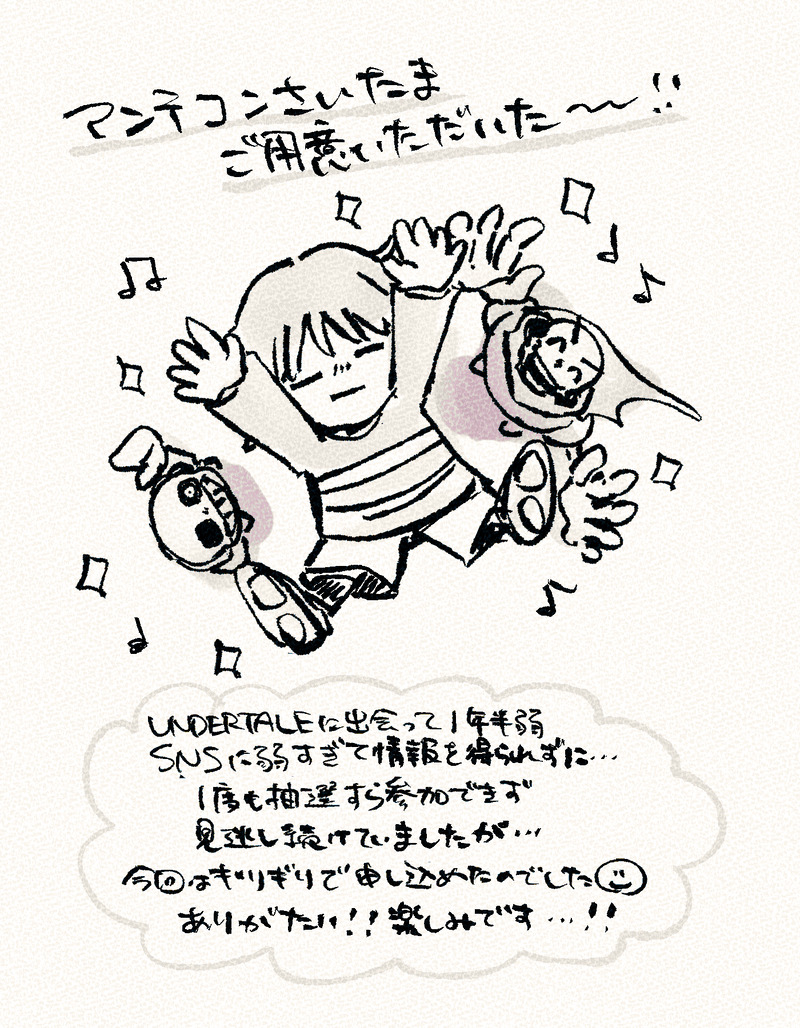 マンテコンさいたま
ご用意いただいた〜〜!!
UNDERTALEに出会って1年半弱
SNSに弱すぎて情報を得られずに…
1度も抽選すら参加できず
見逃し続けていましたが…
今回はギリギリで申し込めたのでした
ありがたい!!楽しみです…!!